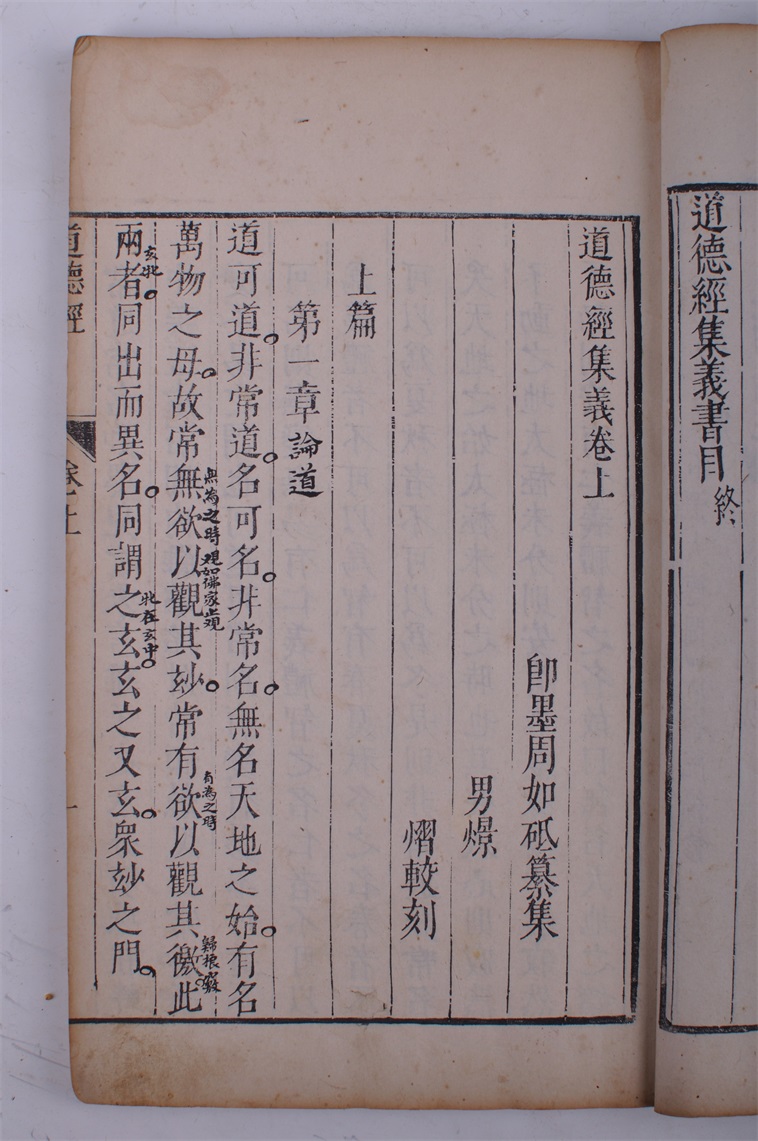 道德經集義書目終
道德經集義卷上
卽墨周如砥纂集
男燝
熠較刻
上篇
第一章論道
道可道非常道名可名非常名無名天地之始有名
無為之時 觀如佛家止觀
有為之時
歸根竅
萬物之母故常無欲以觀其玅常有欲以觀其徼此
玄牝
牝在玄中
兩者同出而異名同謂之玄玄之又玄衆玅之門
道德經
卷上
一